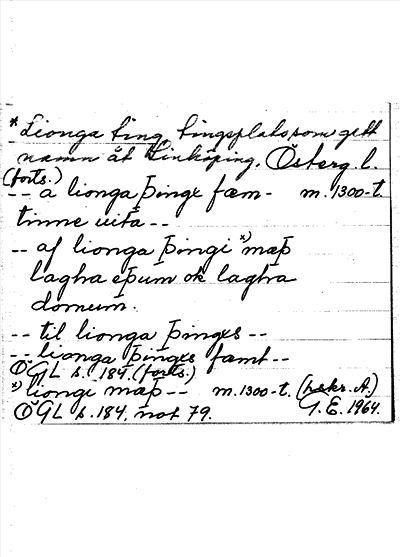 *Lionga ting, tingsplats som gett
namn åt Linköping. Österg l.
(forts.)
-- a lionga þingx fæm- m. 1300-t.
tinne uita --
-- af lionga þingi x) mæþ
lagha eþum ok lagha
domum.
-- til lionga þingxs --
-- lionga þingxs fæmt --
ÖGL s. 184. (forts.)
x) liongi mæþ -- m. 1300-t. (hskr. A.)
ÖGL s. 184, not 79. G. E. 1964.